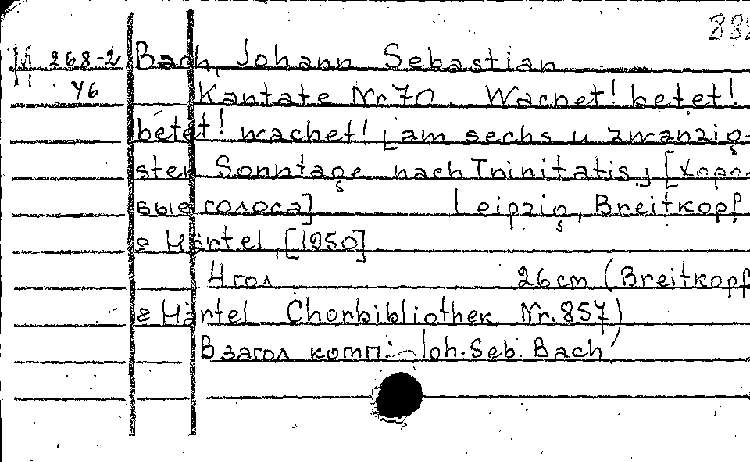 М 268-2 Bach, Johann Sebastian
У6 Kantate Nr. 70. Wachet! betet!
betet! wachet! [am sechs u zwanzig-
sten Sonntage nach Trinitatis] [Хоро-
вые голоса] Leipzig, Breitkopf
& Härtel, [1950]
4 гол. 26 cm (Breitkopf
& Härtel Chorbibliothek Nr. 857)
В загол. комп: Joh. Seb. Bach